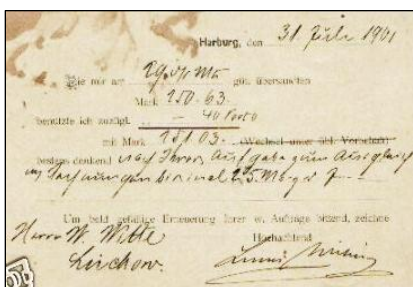 Harburg, den 31 Juli 1901
Die mir am 29. d. Mts gütl. übersandten
Mark 150.63.
benützte ich zuzügl. — 40 Porto
mit Mark 151.03. (Wechsel unter übl. Vorbehalt)
bestens dankend nach Ihrer Aufgabe zum Ausgleich
Um bald gefällige Erneuerung Ihrer w. Aufträge bittend, zeichne
Herrn W. Witte
Hochachtend
Lüchow.